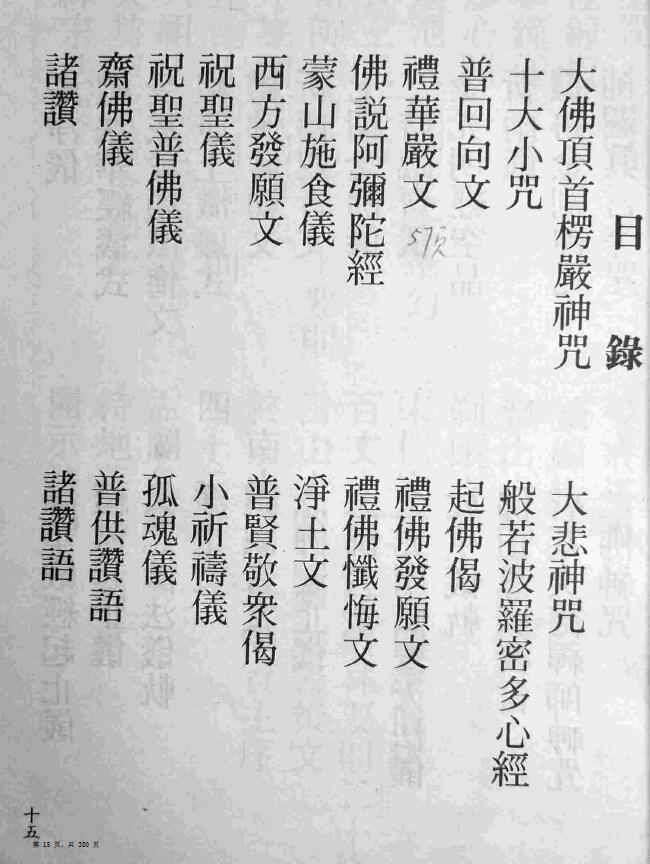 目錄
大佛頂首楞嚴神咒
大悲神咒
十大小咒
般若波羅密多心經
普回向文
起佛偈
禮華嚴文
57页
禮佛發願文
佛説阿彌陀經
禮佛懺悔文
蒙山施食儀
淨土文
西方發願文
普賢敬衆偈
祝聖儀
小祈禱儀
祝聖普佛儀
孤魂儀
齋佛儀
普供讚語
諸讚
諸讚語
十五
第 15 页，共 380 页